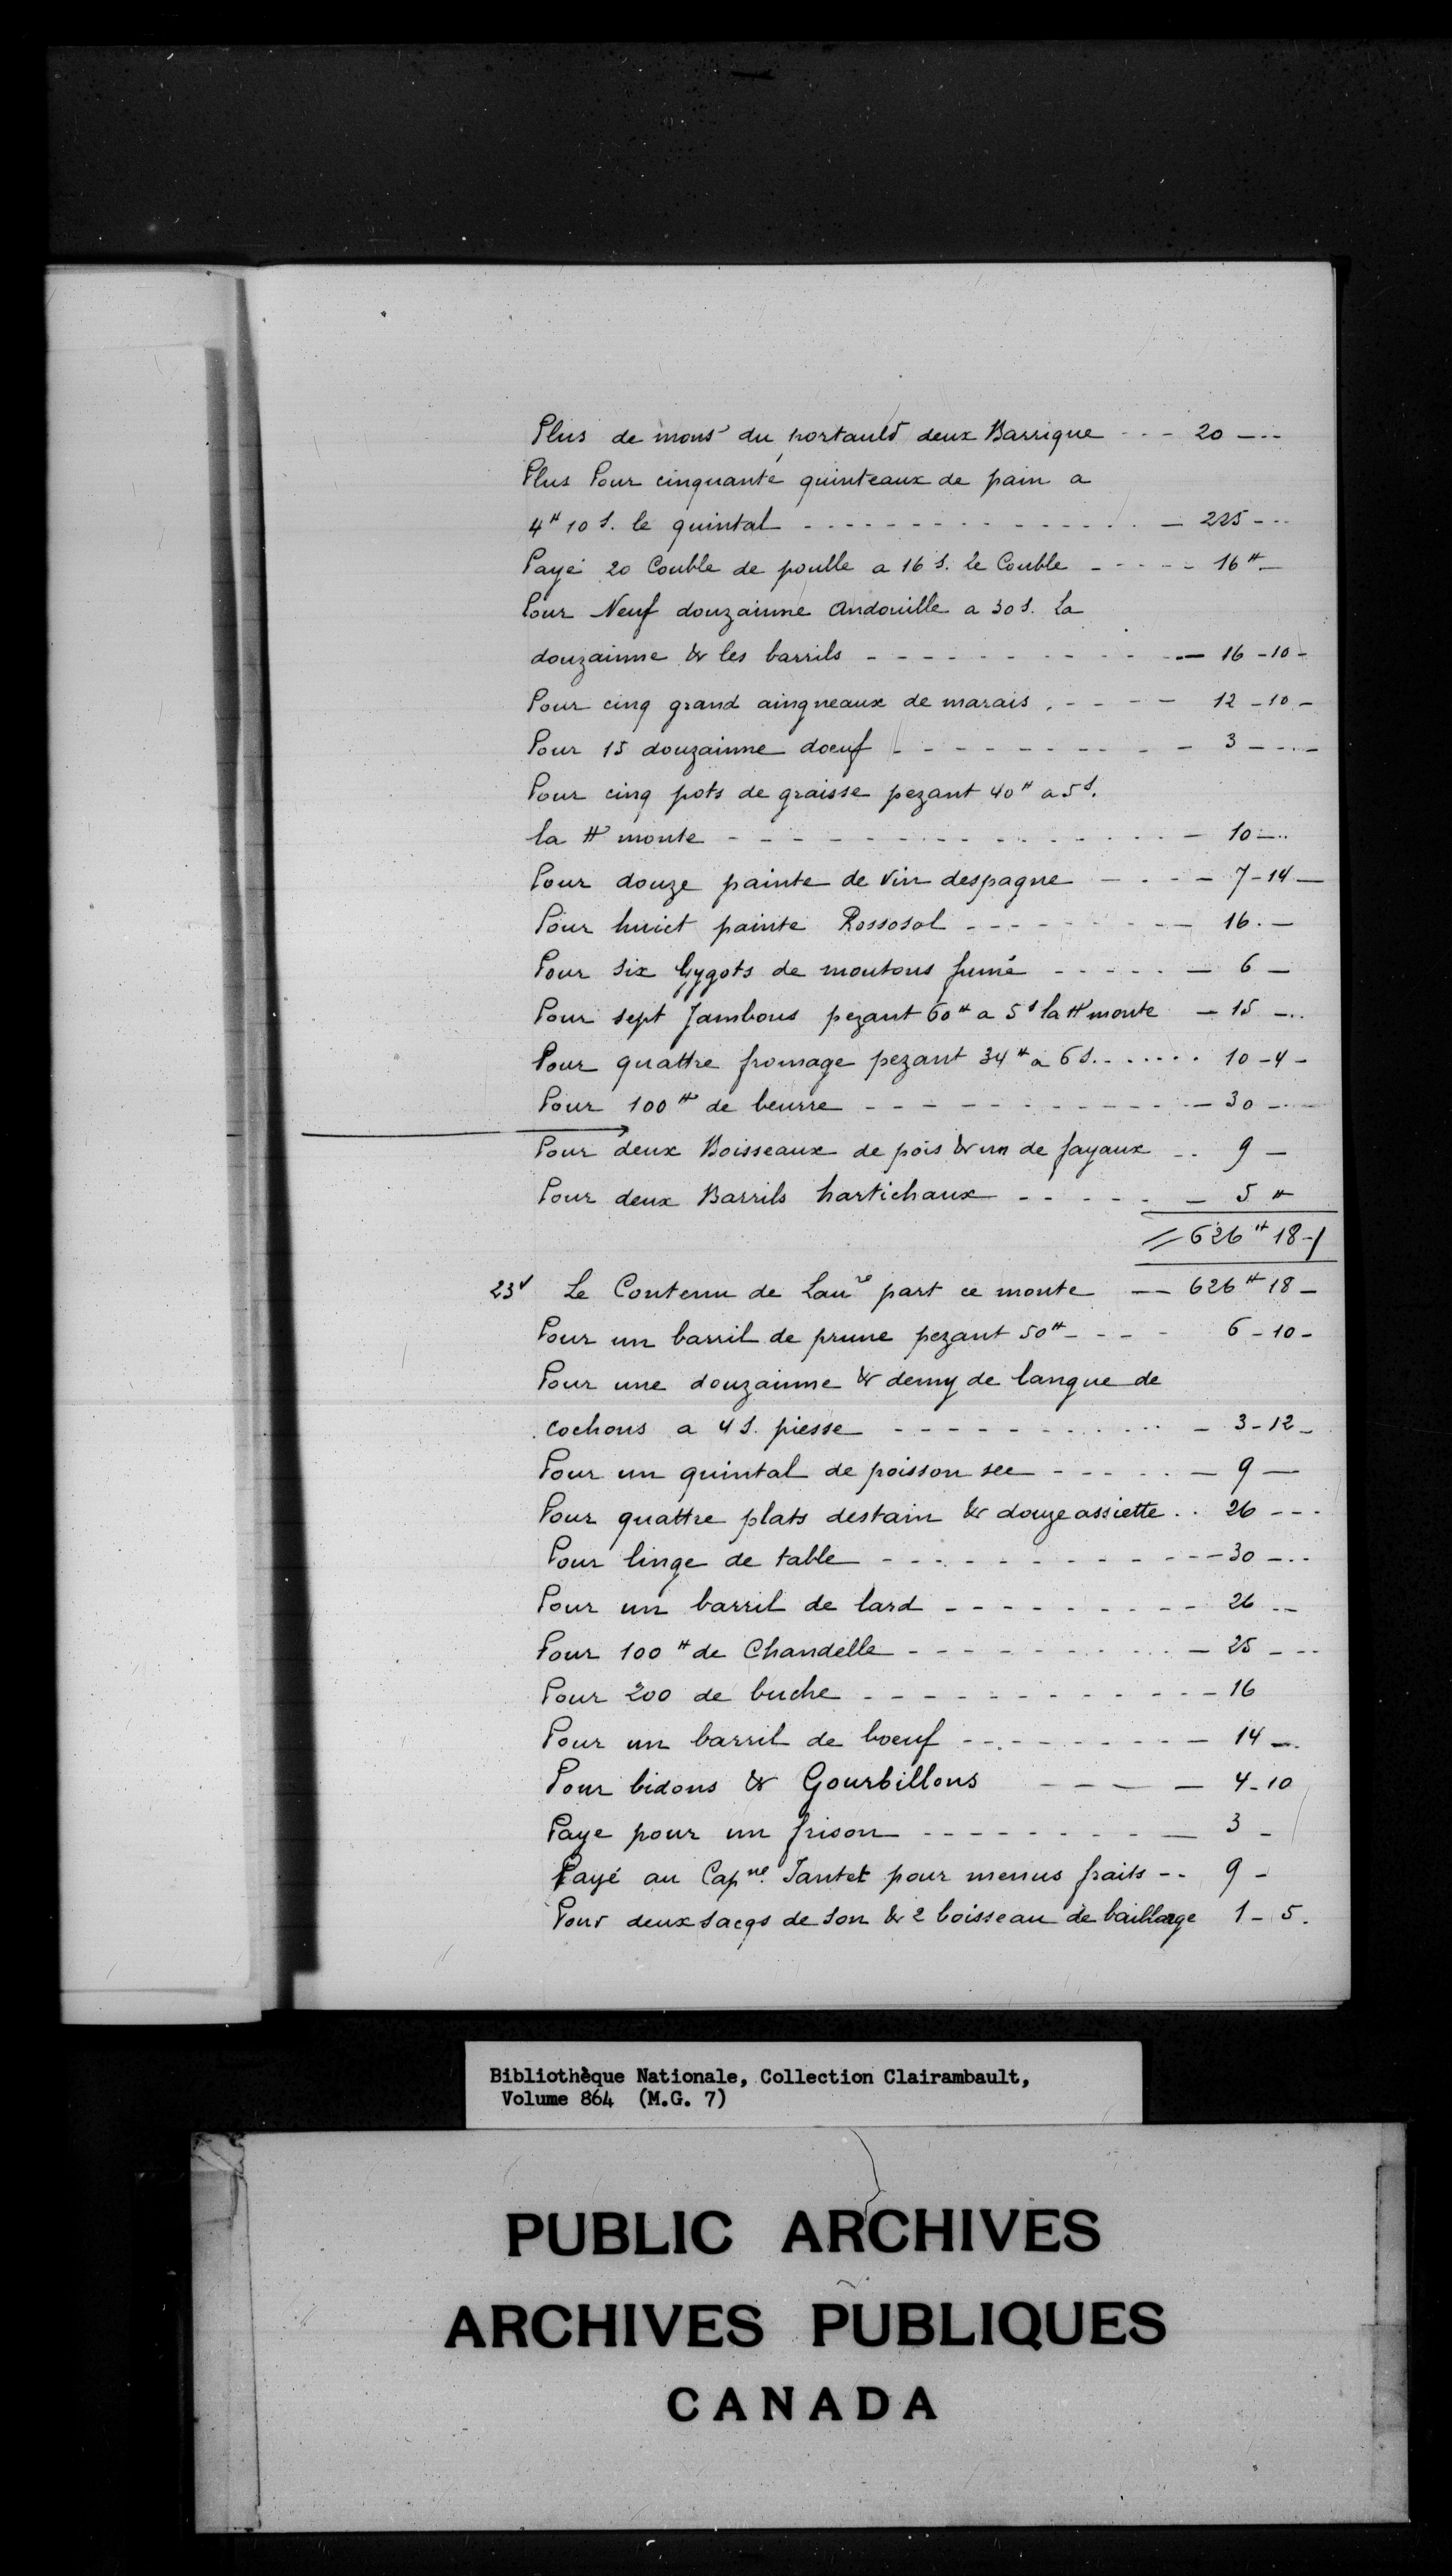 Plus de mons.r du portauld deux Barrique --- 20 ---
Plus Pour cinquante quinteaux de pain a
4# 10 s. le quintal --- 225 ---
Payé 20 Couble de poulle a 16 s. le Couble --- 16# -
Pour Neuf douzainne andouille a 30 s. la
douzainne & les barrils --- 16 - 10 -
Pour cinq grand aingneaux de marais --- 12 - 10 -
Pour 15 douzainne doeuf --- 3 ---
Pour cinq pots de graisse pezant 40# a 5 s.
la # monte --- 10 ---
Pour douze painte de Vin despagne --- 7 - 14 -
Pour huict painte Rossosol --- 16 -
Pour six Gygots de moutons fumé --- 6 -
Pour sept Jambons pezant 60# a 5 s la # monte - 15 ---
Pour quattre fromage pezant 34# a 6 s. --- 10 - 4 -
Pour 100# de beurre --- 30 ---
Pour deux Boisseaux de pois & un de fayaux -- 9 -
Pour deux Barrils hartichaux --- 5#
= 626# 18 -/
23v Le Contenu de Lau.re part ce monte -- 626# 18 -
Pour un barril de prune pezant 50# --- 6 - 10 -
Pour une douzainne & demy de langue de
cochons a 4 s. piesse --- 3 - 12 -
Pour un quintal de poisson sec --- 9 -
Pour quattre plats destain & douze assiette .. 26 ---
Pour linge de table --- 30 ---
Pour un barril de lard --- 26 --
Pour 100# de Chandelle --- 25 ---
Pour 200 de buche --- 16
Pour un barril de boeuf --- 14 -
Pour bidons & Gourbillons --- 4 - 10
Paye pour un frison --- 3 -
Payé au Cap.ne Jantet pour menus fraits -- 9 -
Pour deux sacqs de son & 2 boisseau de baillarge 1 - 5.
Bibliothèque Nationale, Collection Clairambault,
Volume 864 (M.G. 7)
PUBLIC ARCHIVES
ARCHIVES PUBLIQUES
CANADA